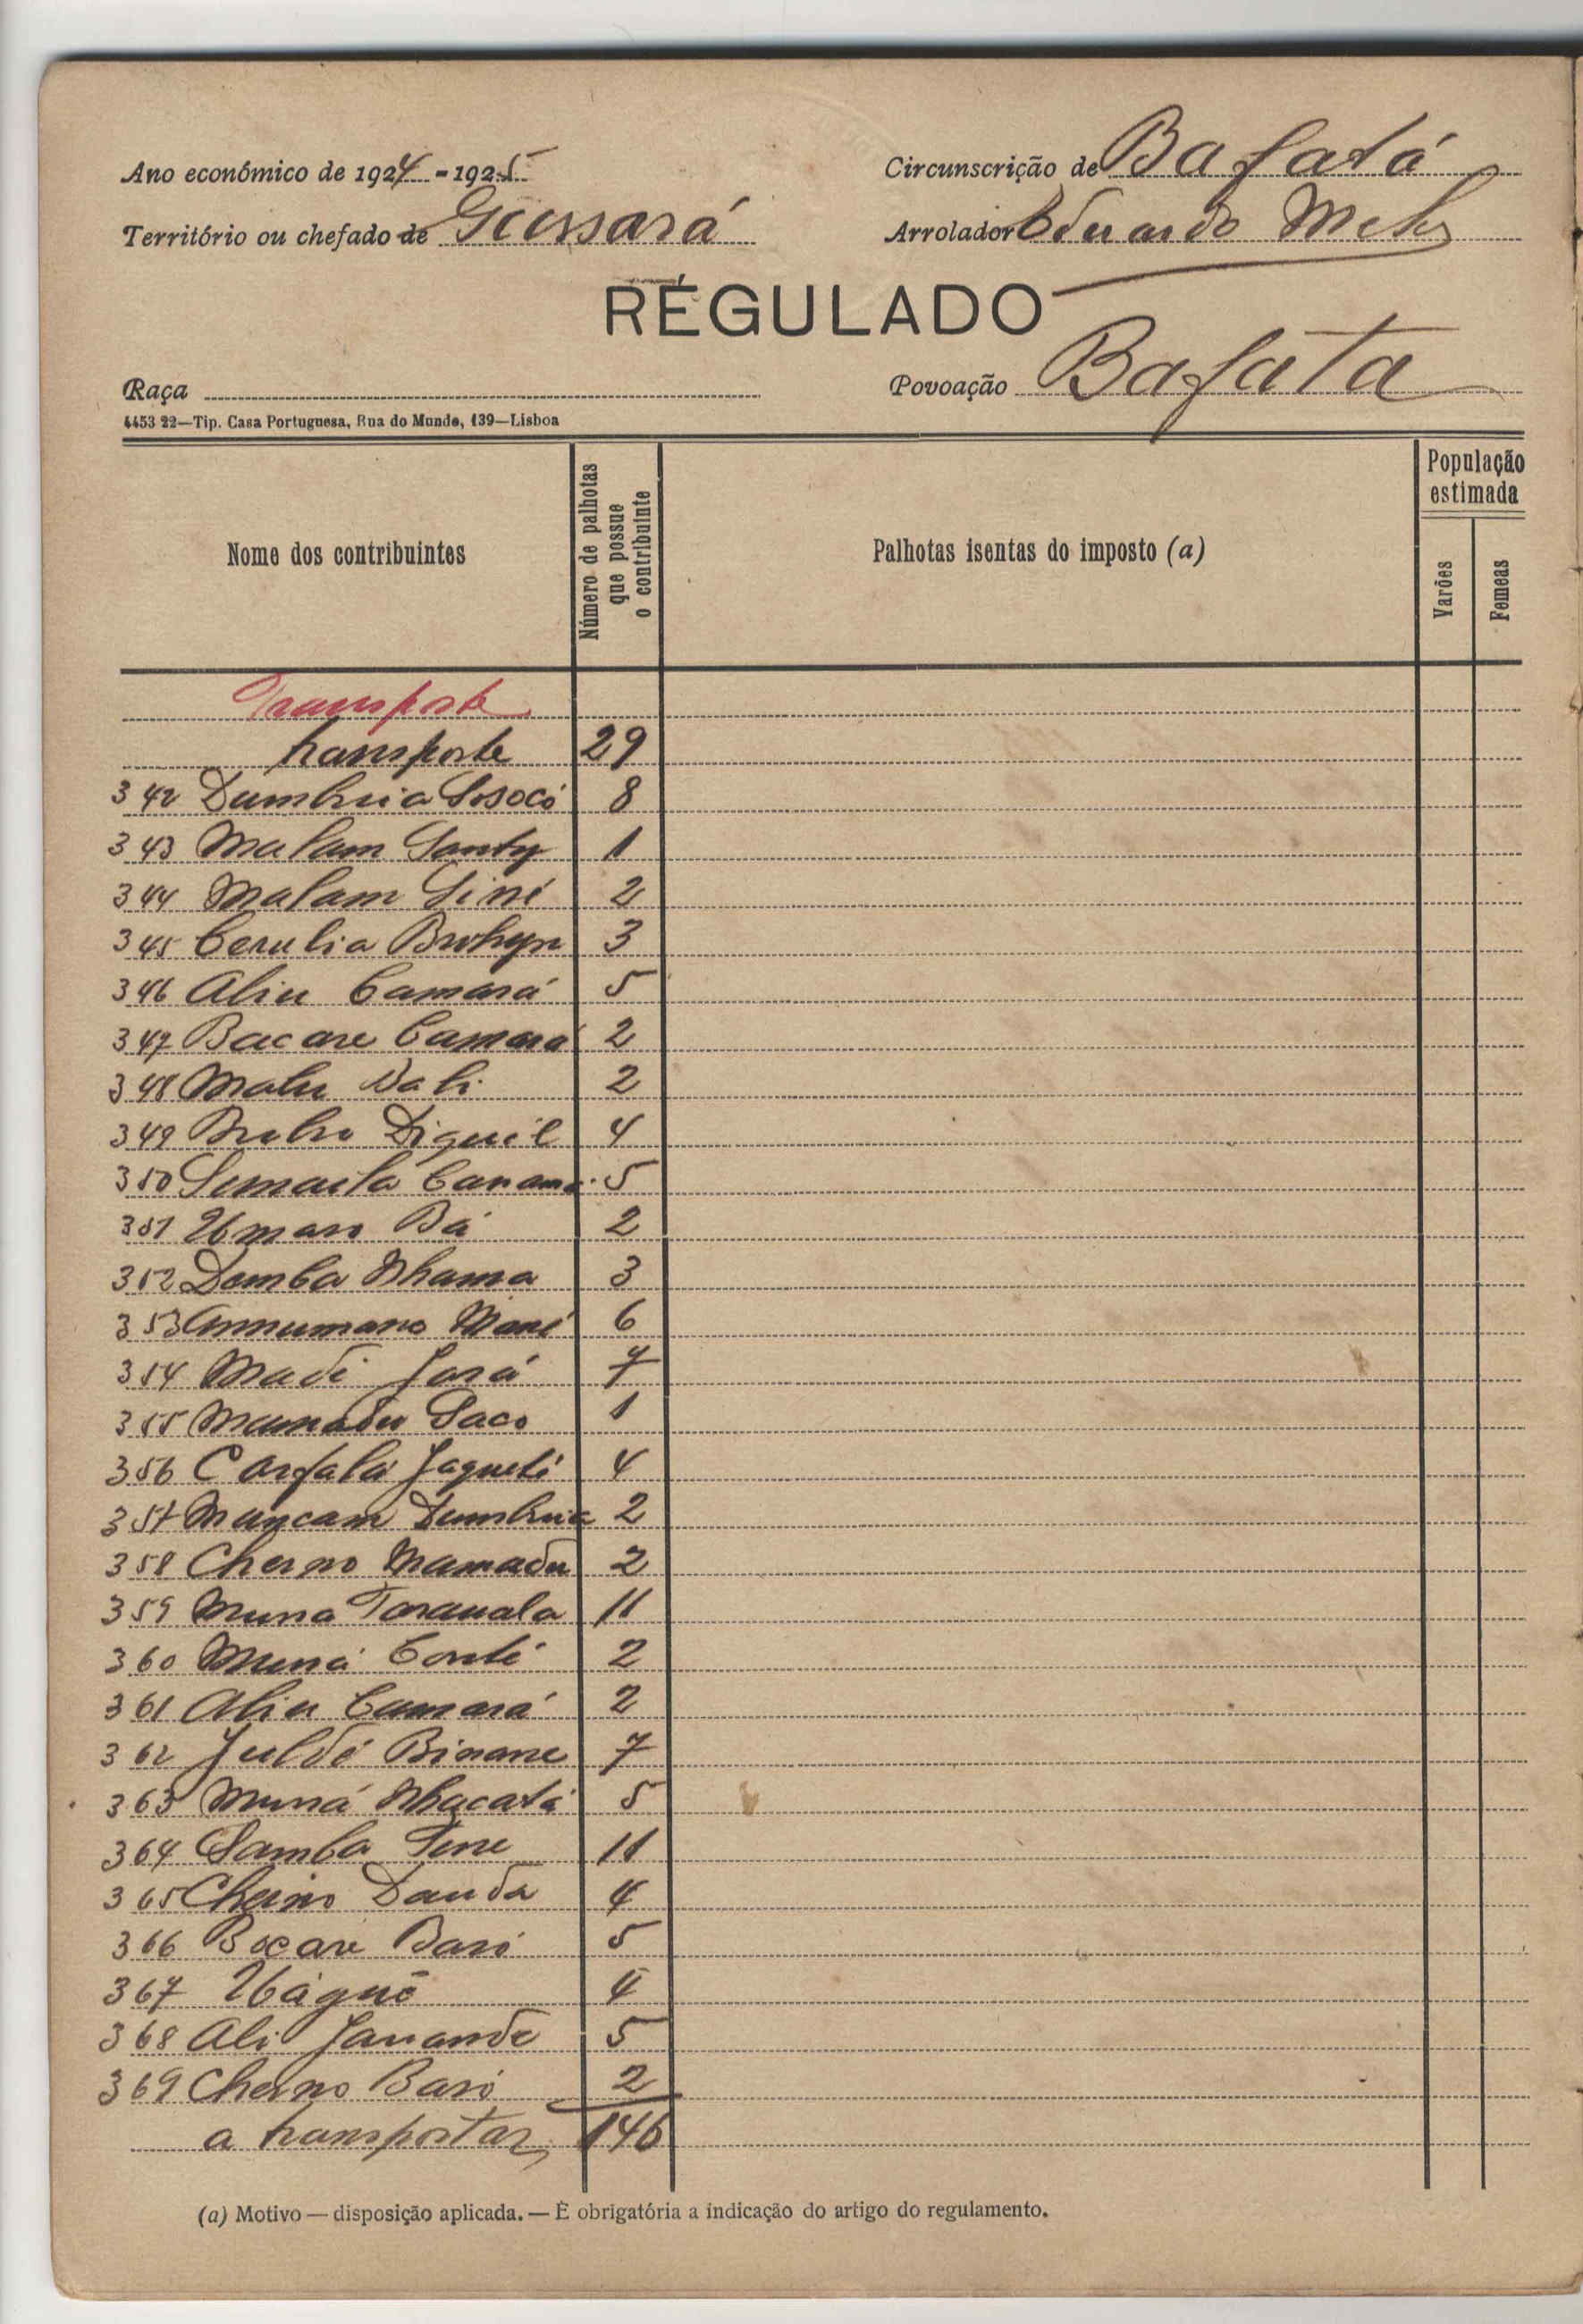 Ano económico de 1924-1925
Circunscrição de Bafatá
Território ou chefado de Gussará
Arrolador Eduardo
RÉGULADO
Raça
Povoação Bafatá
4453 22—Tip. Casa Portuguesa, Rua do Mundo, 139—Lisboa
Nome dos contribuintes
Número de palhotas que possue o contribuinte
Palhotas isentas do imposto (a)
População estimada
Varões
Femeas
Transporte
transporte 29
342 Dumbuia Sosocó 8
343 Malam Santy 1
344 Malam Sini 2
345 3
346 Aliu Camará 5
347 Bacare Camará 2
348 Malu Dali 2
349 4
350 5
351 Umaro Bá 2
352 Demba Nhama 3
353 Annumano Mané 6
354 Madi Jará 7
355 Mamadu Saco 1
356 Carfala Jagueté 4
357 Mancam Dumbuia 2
358 Cherno Mamadu 2
359 Muna Tarauala 11
360 Muná Conté 2
361 Aliu Camará 2
362 Juldé Binane 7
363 Muná Nhacatá 5
364 Samba Tene 11
365 Cherno Dauda 4
366 Bocare Baró 5
367 4
368 Ali Janande 5
369 Cherno Baró 2
a transportar 146
(a) Motivo — disposição aplicada. — É obrigatória a indicação do artigo do regulamento.